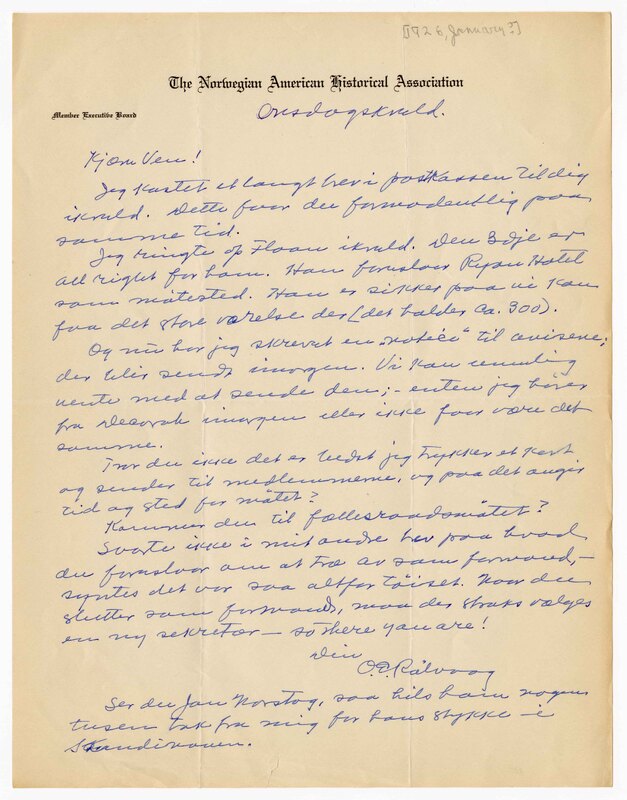 [1926, January?]
The Norwegian American Historical Association
Member Executive Board
Onsdagskveld.
Kjære Ven!
Jeg kastet et langt brev i postkassen til dig
ikveld. Dette faar du formodentlig paa
samme tid.
Jeg ringte op Floan ikveld. Den 3dje er
all right for ham. Han foreslaar Ryan Hotel
som møtested. Han er sikker paa vi kan
faa det store værelse der (det holder ca. 300).
Og nu har jeg skrevet en "notice" til avisene;
den blir sendt imorgen. Vi kan umulig
vente med at sende den; – enten jeg hører
fra Decorah imorgen eller ikke faar være det
samme.
Tror du ikke det er bedst jeg trykker et kort
og sender til medlemmerne, og paa det angir
tid og sted for møtet?
Kommer du til fællesraadsmøtet?
Svarte ikke i mit andre brev paa hvad
du foreslaar om at træ av som formand, –
syntes det var saa altfor tøiset. Naar du
slutter som formand, maa der straks vælges
en ny sekretær – so there you are!
Din
O.E. Rölvaag
Ser du Jon Norstog, saa hils ham nogen
tusen tak fra mig for hans stykke i
Skandinaven.